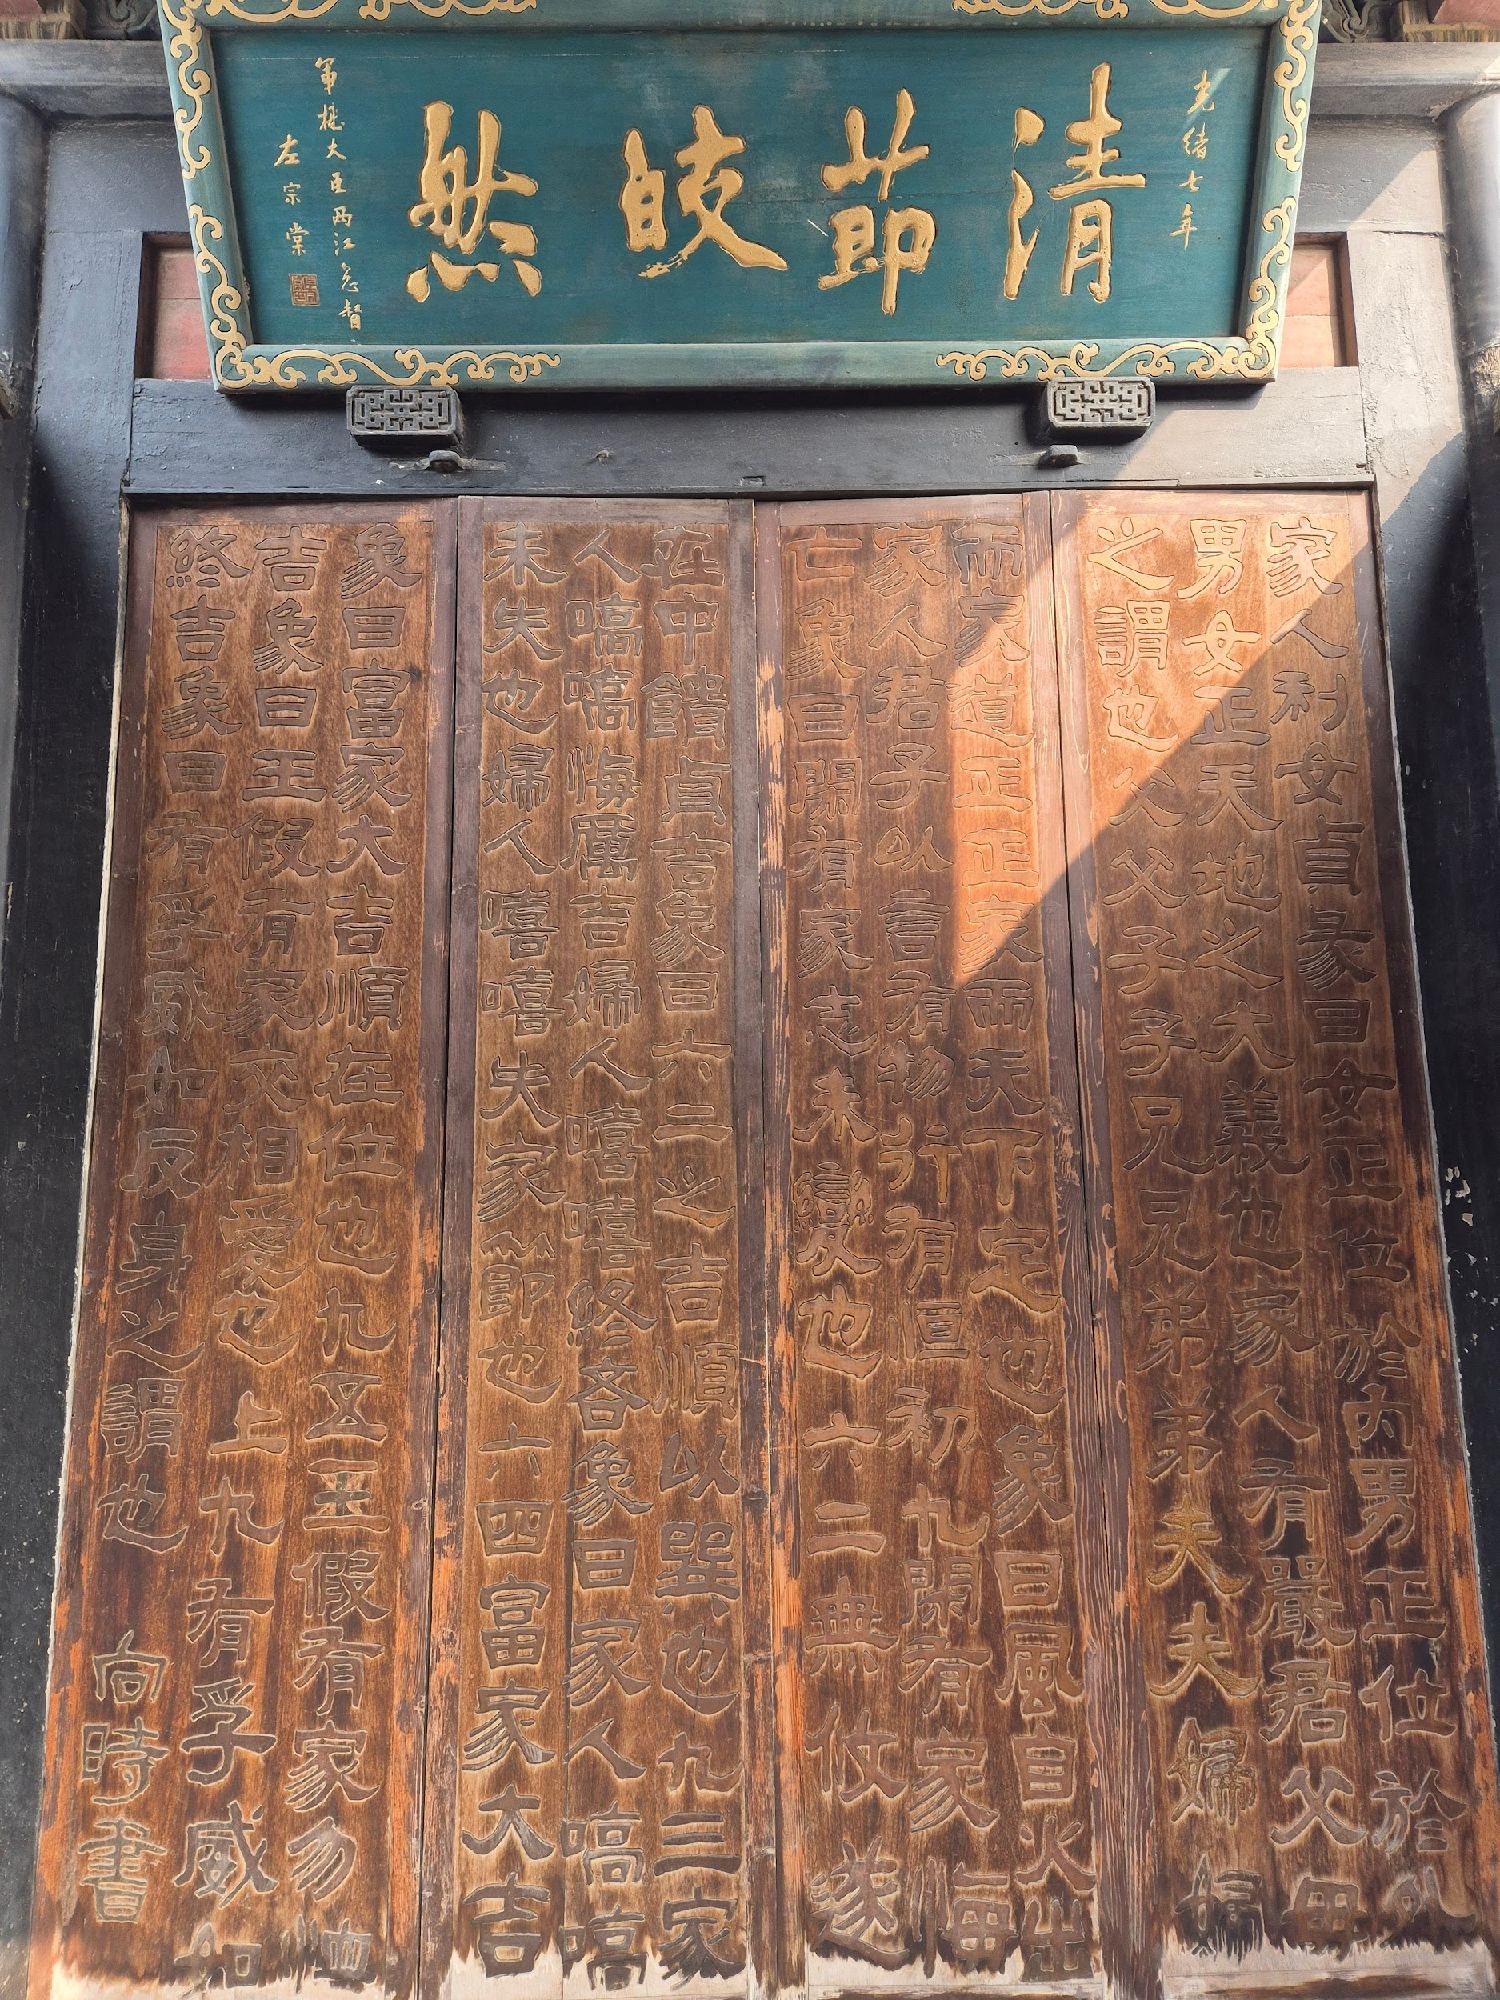 光緒七年
清節皎然
軍機大臣兩江总督
左宗棠
家人利女貞彖曰女正位於內男正位於外
男女正天地之大義也家人有嚴君父母
之謂也父父子子兄兄弟弟夫夫婦婦
而家道正正家而天下定也象曰風自火出
家人君子以言有物行有恆初九閑有家悔
亡象曰閑有家志未變也六二無攸遂
在中饋貞吉象曰六二之吉順以巽也九三家
人嗃嗃悔厲吉婦人嘻嘻終吝象曰家人嗃嗃
未失也婦人嘻嘻失家節也六四富家大吉
象曰富家大吉順在位也九五王假有家勿恤
吉象曰王假有家交相愛也上九有孚威如
終吉象曰有孚威如反身之謂也 向時書